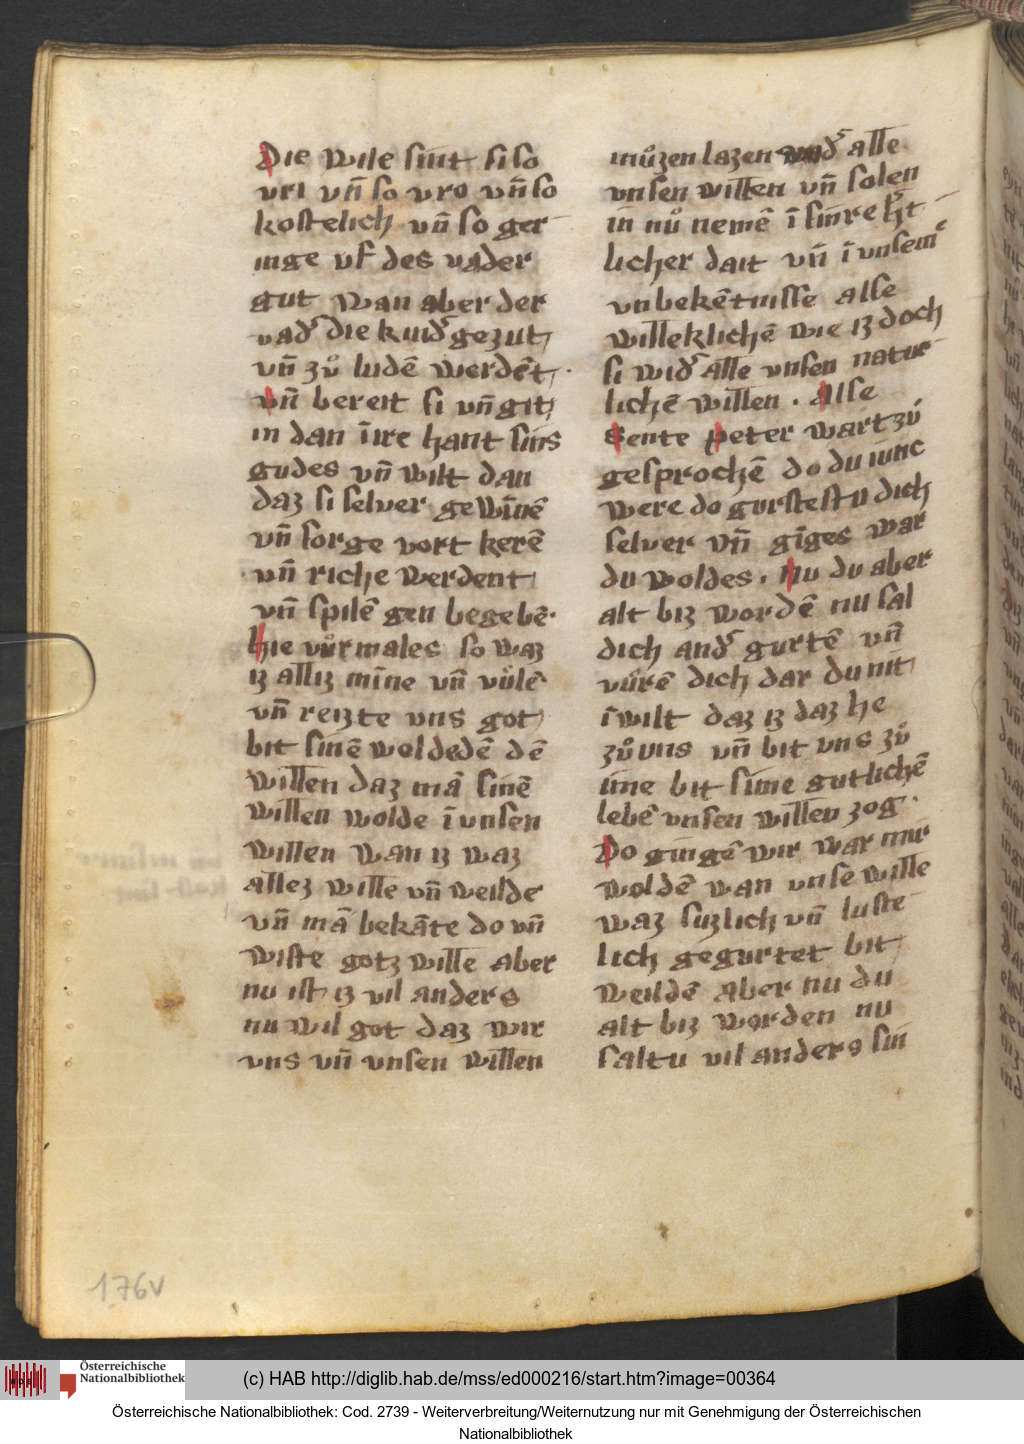 Die wile sint si so
vri vn̄ so vro vn̄ so
kostelich vn̄ so ger
inge vf des vader
gut wan aber der
vad᷎ die kuid᷎ gezut
vn̄ zuͦ ludē werdēt.
vn̄ bereit si vn̄ git
in dan īre hant sins
gudes vn̄ wilt dan
daz si selver gewīnē
vn̄ sorge vort kerē
vn̄ riche werdent
vn̄ spilē gen begebē.
hie vuͦrmales so waz
iz alliz mīne vn̄ vuͦlē
vn̄ reizte vns got
bit sinē woldedē dē
willen daz mā sinē
willen wolde ī vnsen
willen wan iz waz
allez wille vn̄ weilde
vn̄ mā bekāte do vn̄
wiste gotz wille aber
nu ist iz vil anders
nu wil got daz wir
vns vn̄ vnsen willen
muͦzen lazen vnd᷎ alle
vnsen willen vn̄ solen
in nuͦ nemē ī sinre
licher dait vn̄ ī vnsem᷎
vnbekētnisse alse
willeklichē wie iz doch
si wid᷎ alle vnsen natur
lichē willen. alse
sente peter wart zuͦ
gesprochē do du iunc
were do gurstestu dich
selver vn̄ gīges war
du woldes. Nu du aber
alt biz wordē nu sal
dich and᷎ gurtē vn̄
vuͦrē dich dar du nit
īwilt daz iz daz he
zuͦ uns vn̄ bit vns zuͦ
ime bit sime gutlichē
lebē vnsen willen zog.
Do gingē wir war wir
woldē wan vnse wille
waz suzlich vn̄ luste
lich gegurtet bit
weildē aber nu du
alt biz worden nu
saltu vil anders sin
176v
Österreichische
Nationalbibliothek
(c) HAB http://diglib.hab.de/mss/ed000216/start.htm?image=00364
Österreichische Nationalbibliothek: Cod. 2739 - Weiterverbreitung/Weiternutzung nur mit Genehmigung der Österreichischen
Nationalbibliothek